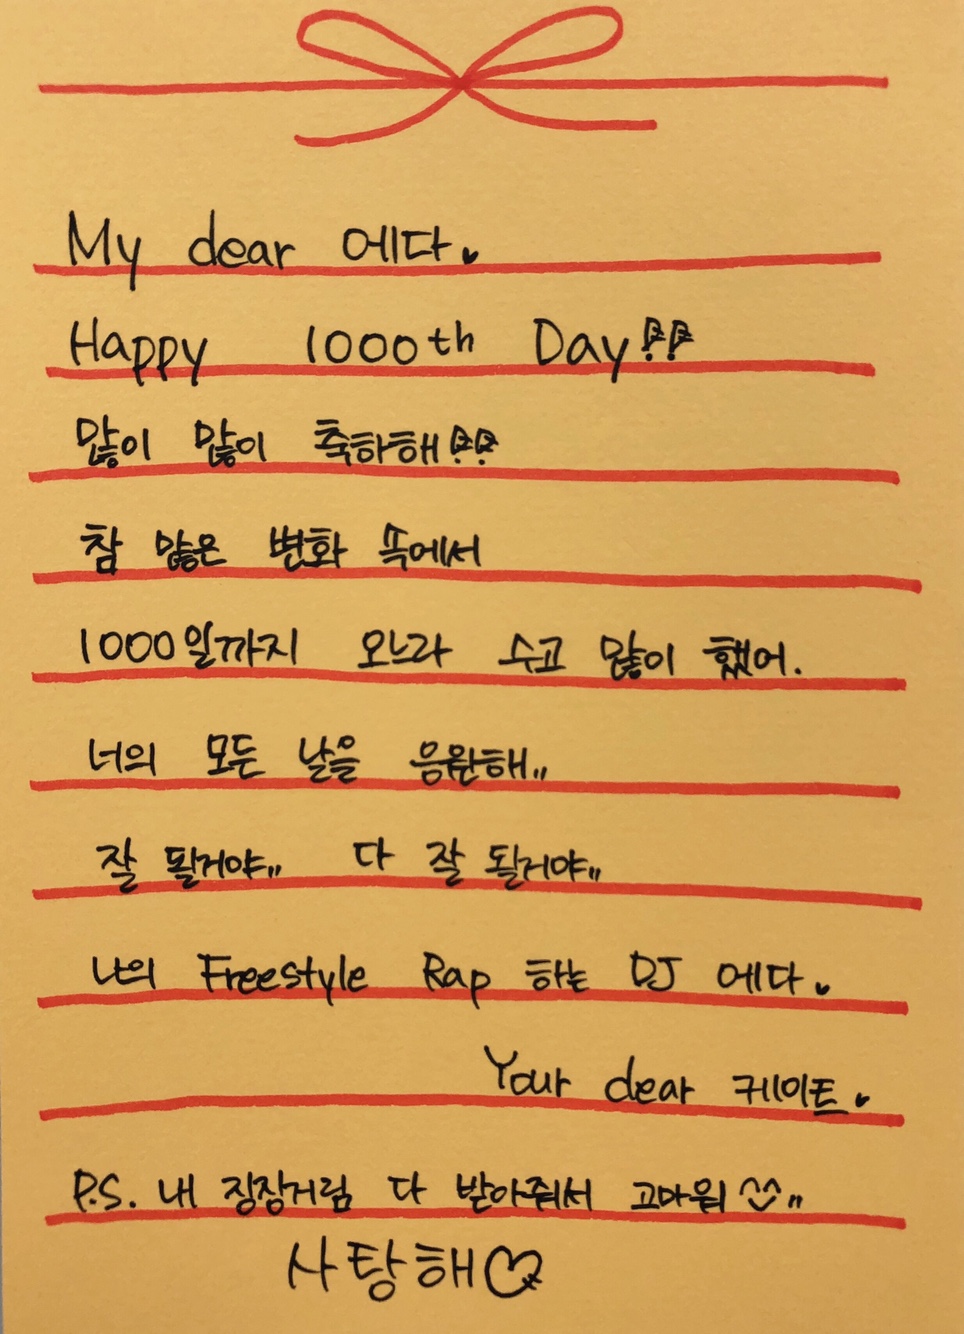 My dear 에다♥
Happy 1000th Day!!
많이 많이 축하해!!
참 많은 변화 속에서
1000일까지 오느라 수고 많이 했어.
너의 모든 날을 응원해"
잘 될거야" 다 잘 될거야"
나의 Freestyle Rap 하는 DJ 에다♥
Your dear 케이트♥
P.S. 내 징징거림 다 받아줘서 고마워 ^^"
사탕해♡